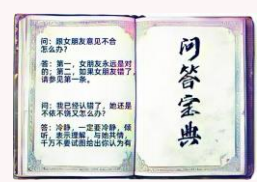 问：跟女朋友意见不合
怎么办？
答：第一，女朋友永远是对
的；第二，如果女朋友错了，
请参见第一条。
问：我已经认错了，她还是
不依不饶又怎么办？
答：冷静，一定要冷静，倾
听，表示理解，与她共情，
千万不要试图给出你认为有
问答宝典